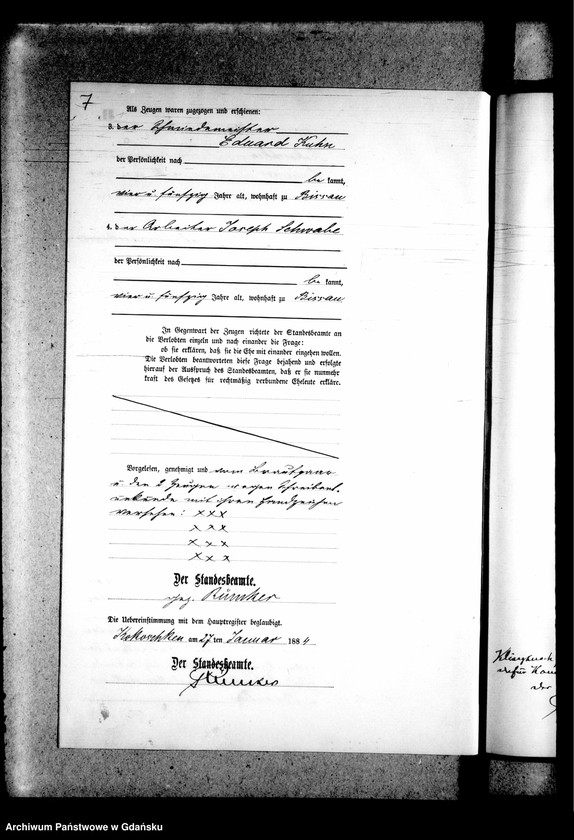 7
Als Zeugen waren zugezogen und erschienen:
3. der Schmiedemeister
Eduard Kuhn
der Persönlichkeit nach
be kannt,
vier u. fünfzig Jahre alt, wohnhaft zu Bissau
4. der Arbeiter Joseph Schwabe
der Persönlichkeit nach
be kannt,
vier u. fünfzig Jahre alt, wohnhaft zu Bissau
In Gegenwart der Zeugen richtete der Standesbeamte an
die Verlobten einzeln und nach einander die Frage:
ob sie erklären, daß sie die Ehe mit einander eingehen wollen.
Die Verlobten beantworteten diese Frage bejahend und erfolgte
hierauf der Ausspruch des Standesbeamten, daß er sie nunmehr
kraft des Gesetzes für rechtmäßig verbundene Eheleute erkläre.
Vorgelesen, genehmigt und vom Brautpaar
u. den 2 Zeugen wegen Schreibens-
unkunde mit ihren Handzeichen
versehen: x x x
x x x
x x x
x x x
Der Standesbeamte.
gez. Rümker
Die Uebereinstimmung mit dem Hauptregister beglaubigt.
Kokoschken am 27 ten Januar 1884
Der Standesbeamte.
Rümker
der
Archiwum Państwowe w Gdańsku